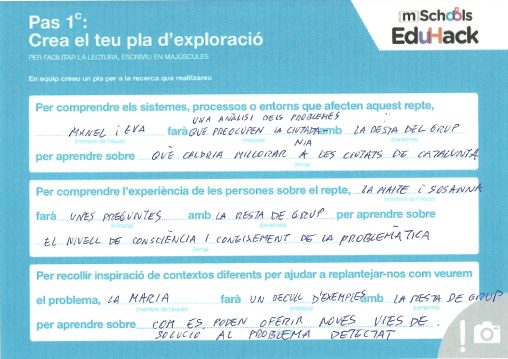 Pas 1c:
Crea el teu pla d'exploració
PER FACILITAR LA LECTURA, ESCRIVIU EN MAJÚSCULES
En equip creeu un pla per a la recerca que realitzareu
[m]Schools
EduHack
Per comprendre els sistemes, processos o entorns que afecten aquest repte,
UNA ANÀLISI DELS PROBLEMES
MANEL i EVA farà QUE PREOCUPEN LA CIUTADA- amb LA RESTA DEL GRUP
NIA
(membre de l'equip) (persones)
per aprendre sobre QUÈ CALDRIA MILLORAR A LES CIUTATS DE CATALUNYA
Per comprendre l'experiència de les persones sobre el repte, LA MAITE i SUSANNA
(membre de l'equip)
farà UNES PREGUNTES amb LA RESTA DE GRUP per aprendre sobre
(persones)
EL NIVELL DE CONSCIÈNCIA I CONEIXEMENT DE LA PROBLEMÀTICA
(tema)
Per recollir inspiració de contextos diferents per ajudar a replantejar-nos com veurem
el problema, LA MARIA farà UN RECULL D'EXEMPLES amb LA RESTA DE GRUP
(membre de l'equip) (persones)
per aprendre sobre COM ES PODEN OFERIR NOVES VIES DE
SOLUCIÓ AL PROBLEMA DETECTAT